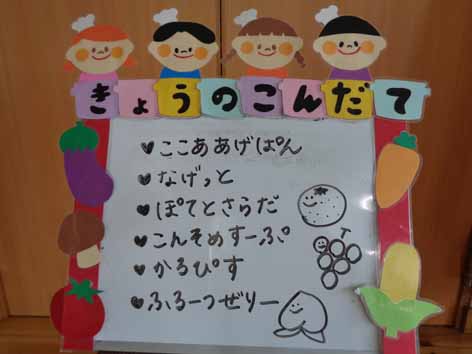 きょうのこんだて
♥ここああげぱん
♥なげっと
♥ぽてとさらだ
♥こんそめすーぷ
♥かるぴす
♥ふるーつぜりー